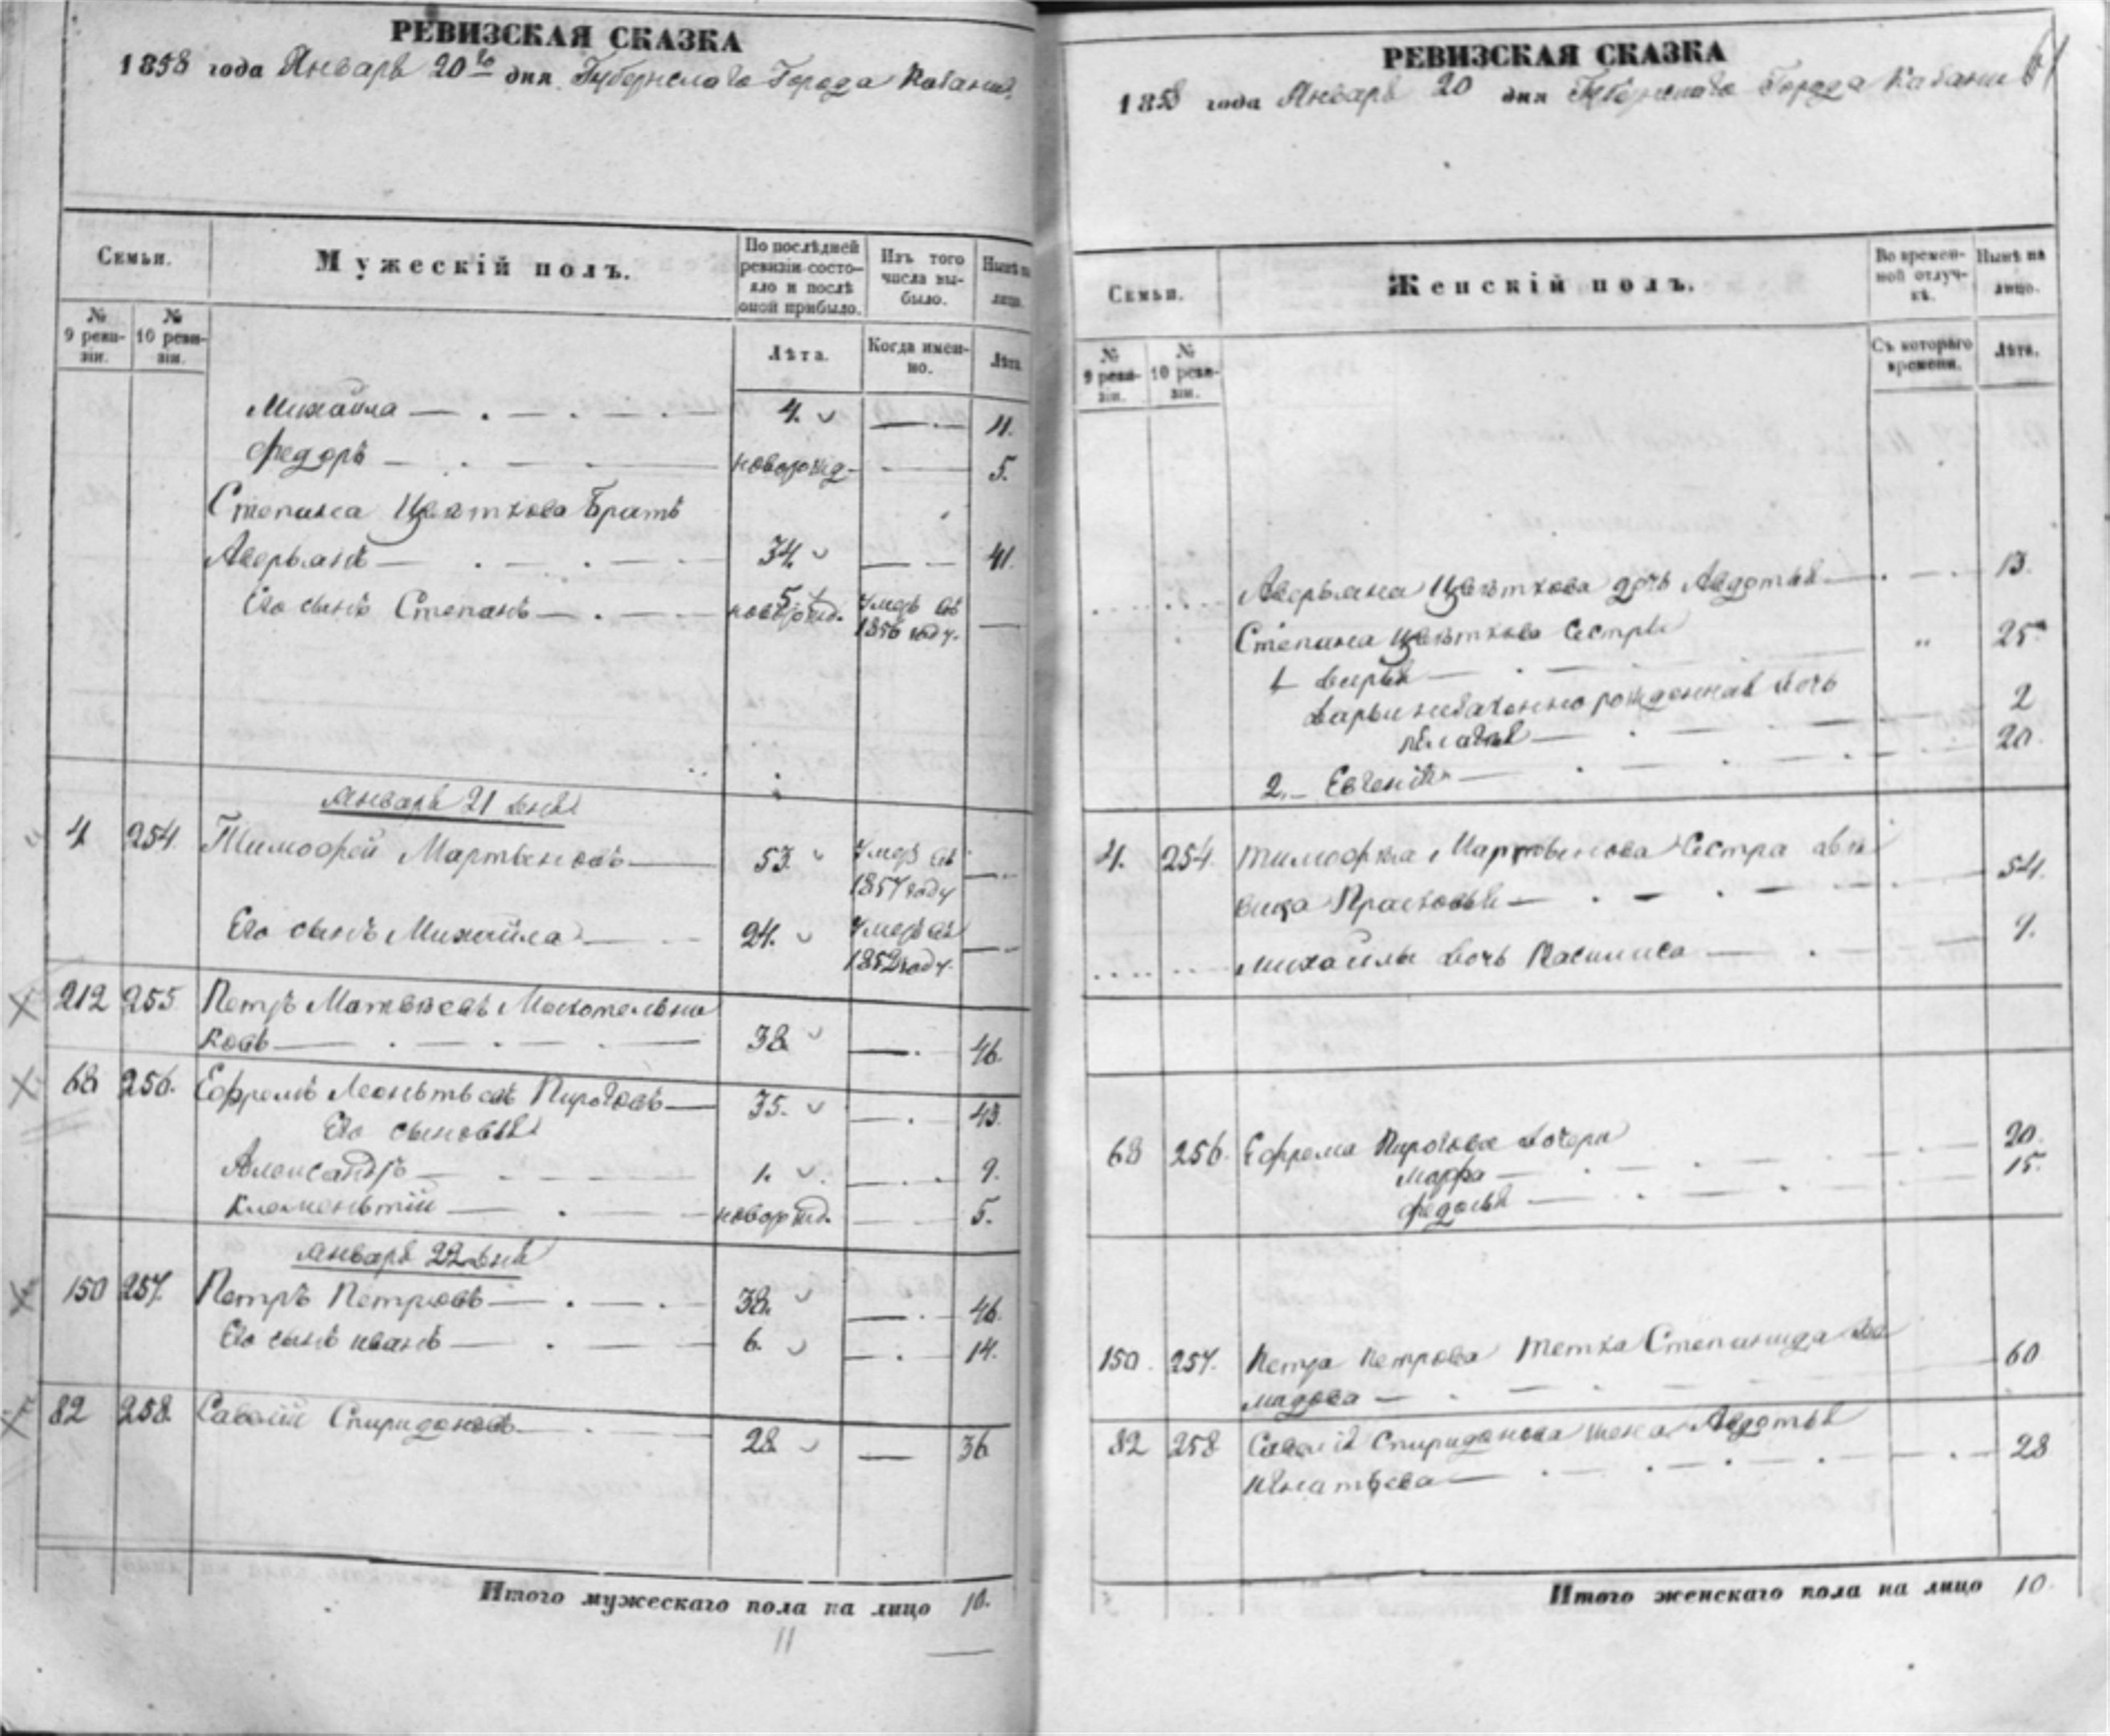 РЕВИЗСКАЯ СКАЗКА
1858 года Января 20го дня Губернскаго Города Казани
Семьи.
Мужескій полъ.
По послѣдней ревизіи состояло и послѣ оной прибыло.
Изъ того числа выбыло.
Нынѣ на лицо.
№ 9 ревизіи.
№ 10 ревизіи.
Лѣта.
Когда именно.
Лѣта.
Михайла 4. 11.
Федоръ новорожд. 5.
Степана Цвѣткова Братъ
Аверьянъ 34 41.
Его сынъ Степанъ 5 новорожд. Умеръ въ 1856 году.
Января 21 дня
4 254 Тимофей Мартьяновъ 53. Умеръ въ 1857 году
Его сынъ Михайла 24. Умеръ въ 1852 году.
212 255 Петръ Матвѣевъ Москательни
ковъ 38 46.
68 256. Ефремъ Леонтьевъ Пироговъ 35. 43.
Его сыновья
Александръ 1. 9.
Клементій новорожд. 5.
Января 22 дня
150 257. Петръ Петровъ 38. 46.
Его сынъ Иванъ 6. 14.
82 258. Савелій Спиридоновъ 28 36
Итого мужескаго пола на лицо 10.
11
РЕВИЗСКАЯ СКАЗКА
61
1858 года Января 20 дня Губернскаго Города Казани
Семьи.
Женскій полъ.
Во временной отлучкѣ.
Нынѣ на лицо.
№ 9 ревизіи.
№ 10 ревизіи.
Съ котораго времени.
Лѣта.
Аверьяна Цвѣткова дочь Авдотья 13.
Степана Цвѣткова Сестры
1 Дарья 25
Дарьи незаконно рожденная дочь
Пелагея 2
2. Евгенія 20.
4. 254. Тимофея Мартьянова Сестра дѣ
вица Прасковья 54.
Михайлы дочь Василиса 9.
68 256. Ефрема Пирогова дочери
Марфа 20.
Федосья 15.
150. 257. Петра Петрова тетка Степанида Де
мидова 60
82 258 Савелія Спиридонова жена Авдотья
Игнатьева 28
Итого женскаго пола на лицо 10.